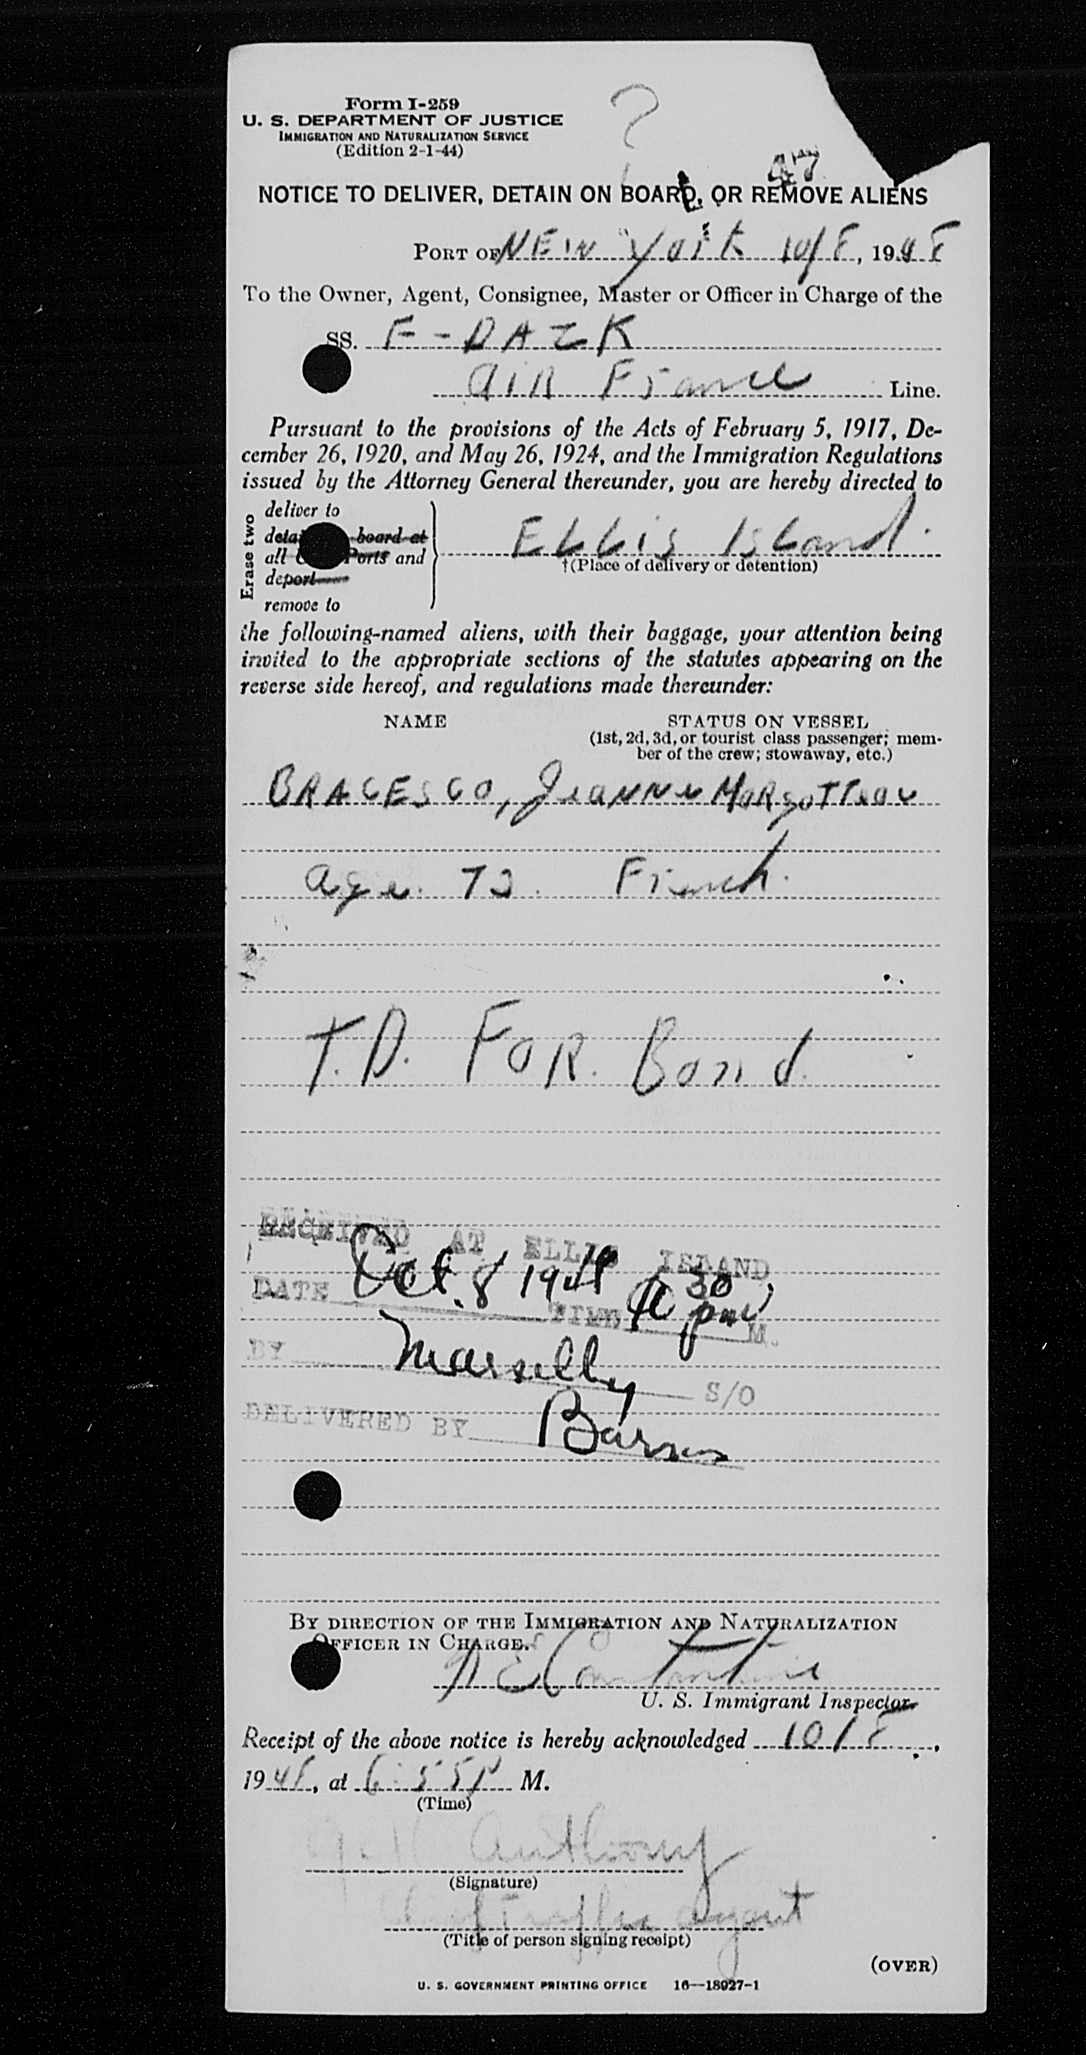 Form I-259
U. S. DEPARTMENT OF JUSTICE
IMMIGRATION AND NATURALIZATION SERVICE
(Edition 2-1-44)
?
47
NOTICE TO DELIVER, DETAIN ON BOARD, OR REMOVE ALIENS
PORT OF NEW York 10/8, 1948
To the Owner, Agent, Consignee, Master or Officer in Charge of the
SS. F-DAZK
AIR France Line.
Pursuant to the provisions of the Acts of February 5, 1917, De-
cember 26, 1920, and May 26, 1924, and the Immigration Regulations
issued by the Attorney General thereunder, you are hereby directed to
Erase two
deliver to
board at
all Ports and
deport
remove to
ELLIS ISLand.
†(Place of delivery or detention)
the following-named aliens, with their baggage, your attention being
invited to the appropriate sections of the statutes appearing on the
reverse side hereof, and regulations made thereunder:
NAME STATUS ON VESSEL
(1st, 2d, 3d, or tourist class passenger; mem-
ber of the crew; stowaway, etc.)
BRACESCO, Jeanne Margotteau
age. 72. French.
T.D. FOR. Bond.
RECEIVED AT ELLIS ISLAND
DATE Oct. 8 1948 TIME 30 pm M.
BY S/O
DELIVERED BY Barnes
BY DIRECTION OF THE IMMIGRATION AND NATURALIZATION
OFFICER IN CHARGE.
U. S. Immigrant Inspector.
Receipt of the above notice is hereby acknowledged 10/8,
1948, at 6:55P M.
(Time)
Anthony
(Signature)
Chief Traffic agent
(Title of person signing receipt)
(OVER)
U. S. GOVERNMENT PRINTING OFFICE 16—18927-1